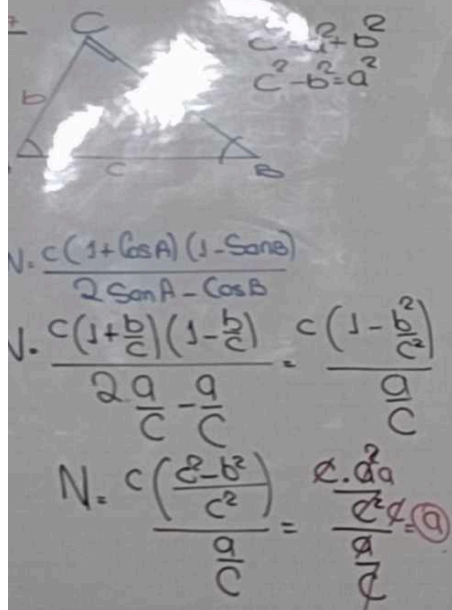 C
c² = a² + b²
b
c² - b² = a²
c
B
N = c(1 + CosA)(1 - SenB) / 2SenA - CosB
N = c(1 + b/c)(1 - b/c) / 2 a/c - a/c = c(1 - b²/c²) / a/c
N = c(c² - b² / c²) / a/c = c·a² a / c² c / a/c = a